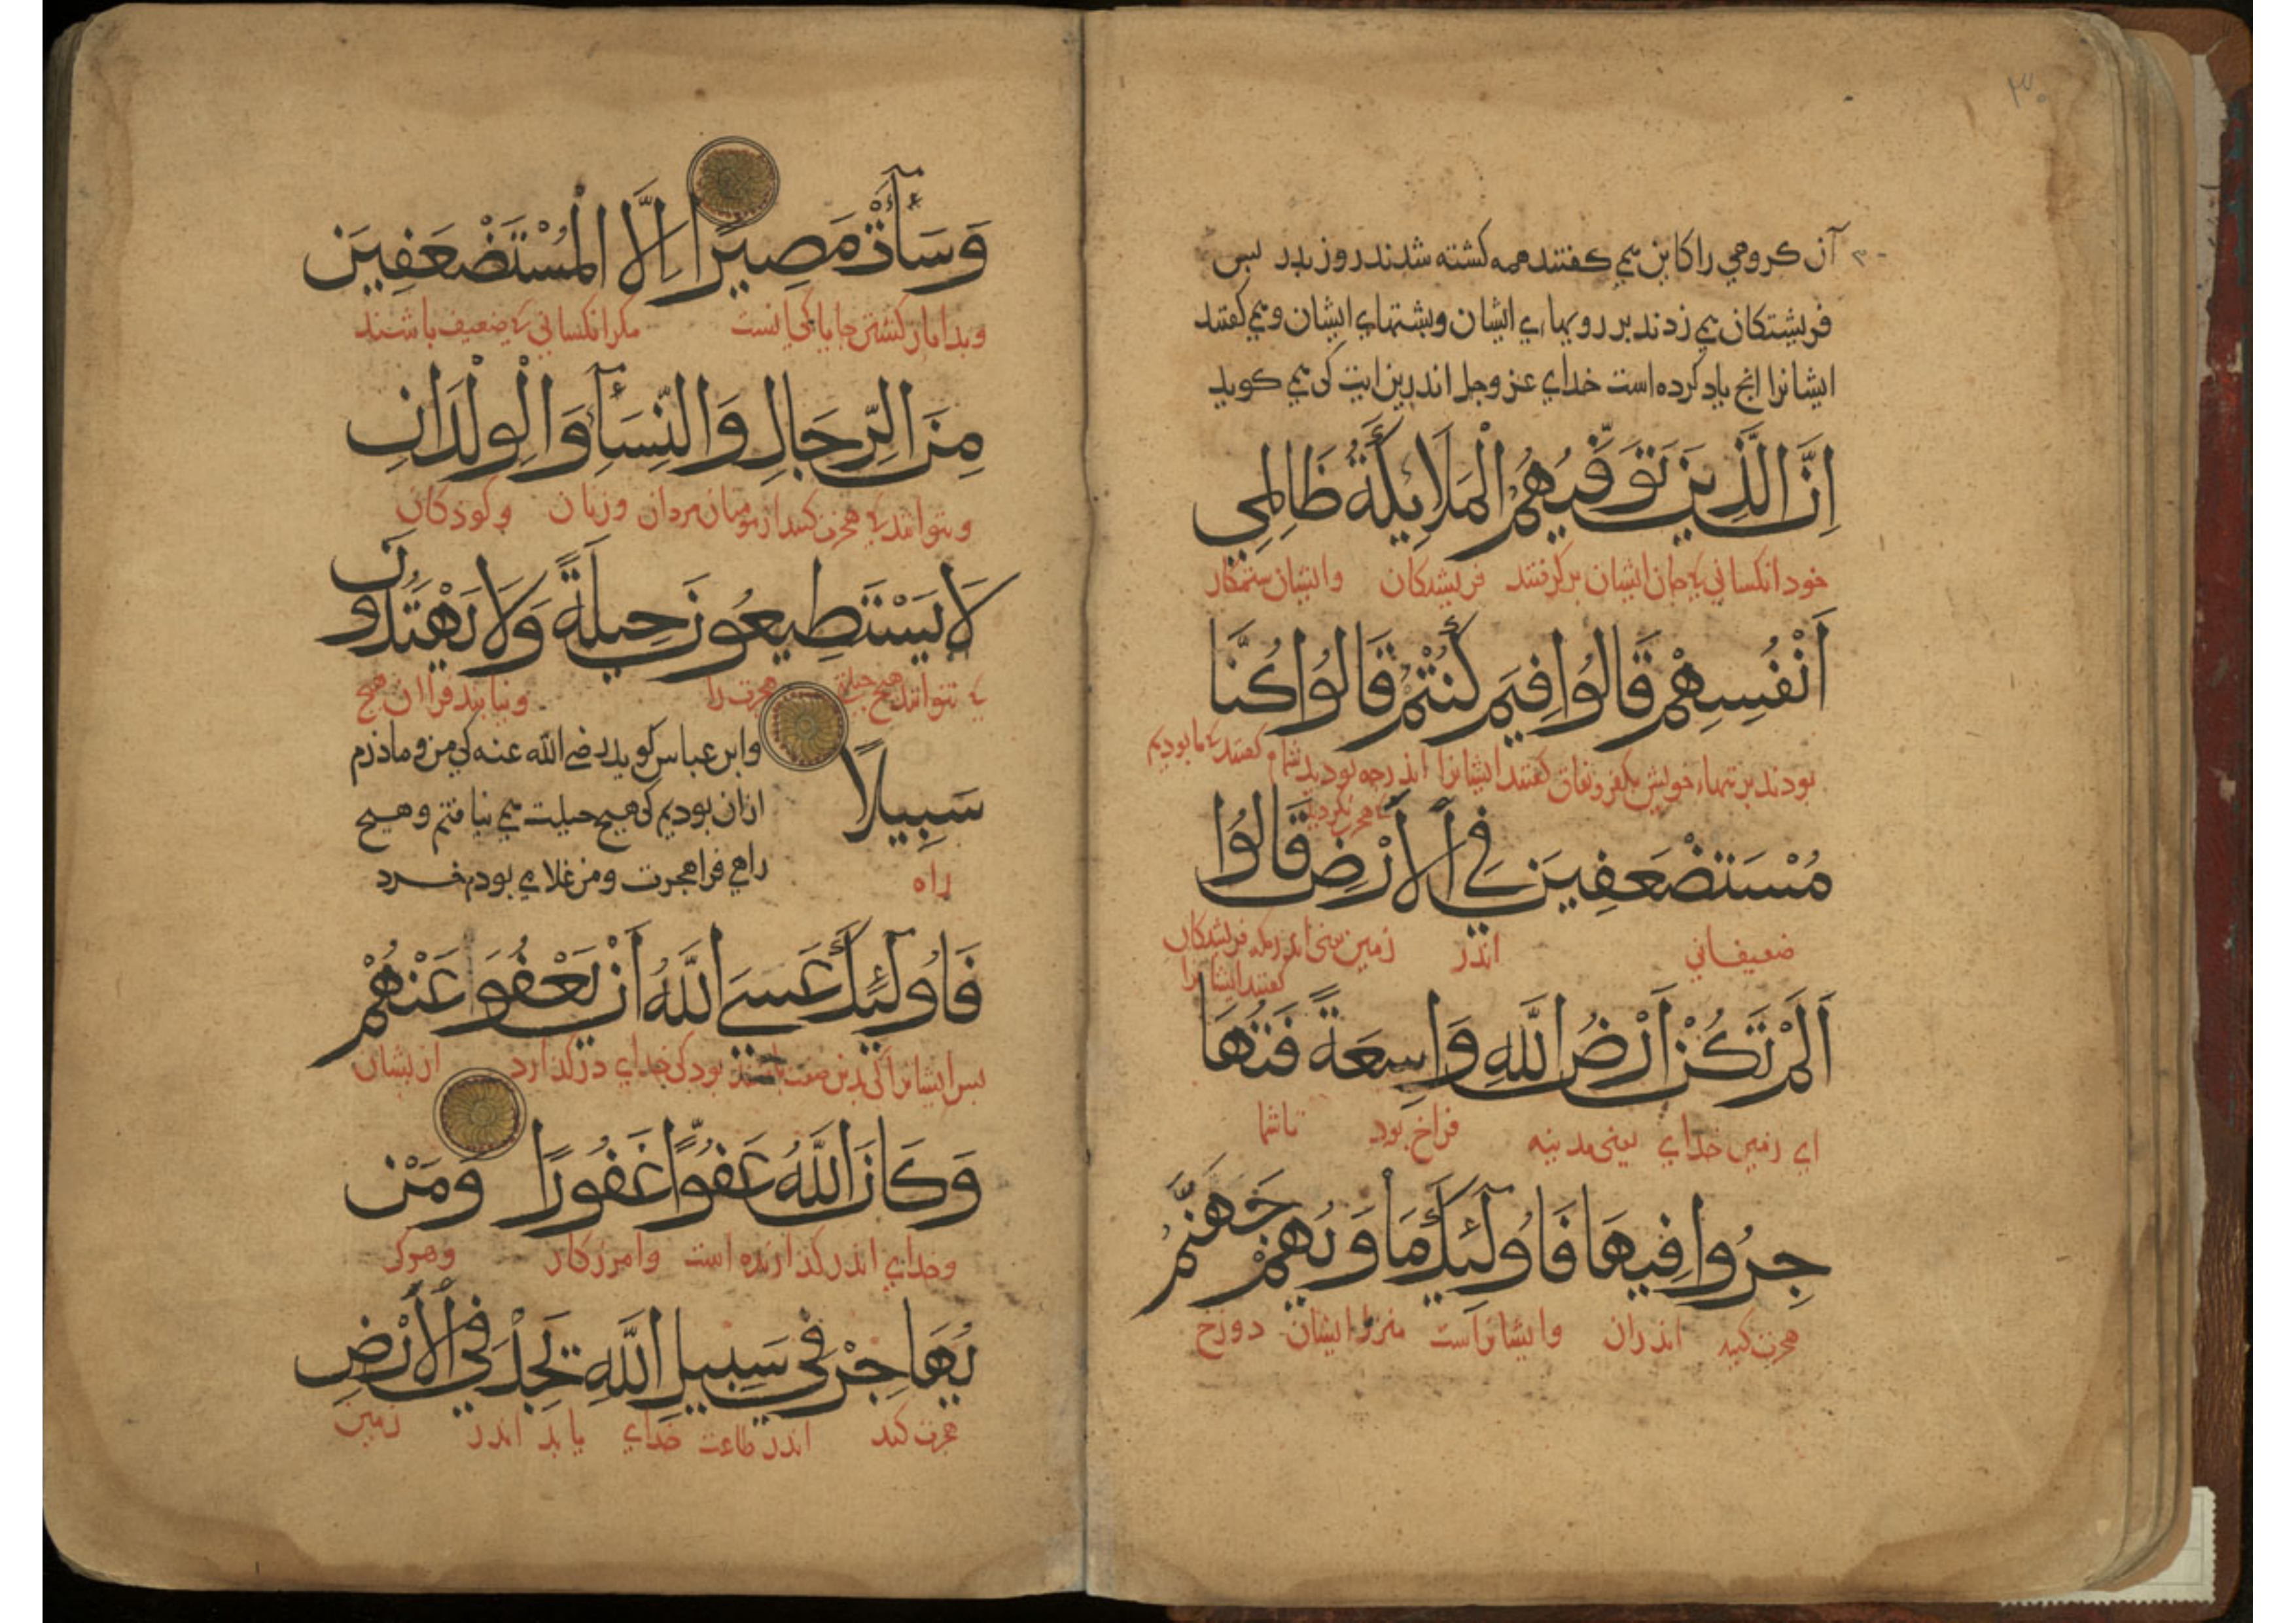 ۳۰
آن کروهی را کابن می کفتند همه کشته شدند روز بدر بس
فریشتکان می زدند بر رویهاء ایشان وبشتهاء ایشان و می کفتند
ایشانرا انج یاد کرده است خدای عز وجل اندرین ایت کی می کوید
اِنَّ الَّذِينَ تَوَفّٰيهُمُ الْمَلَائِكَةُ ظَالِمِي
خود انکسانی که جان ایشان برکرفتند فریشتکان وایشان ستمکار
اَنْفُسِهِمْ قَالُوا فِيمَ كُنْتُمْ قَالُوا كُنَّا
بودند بر تنهاء خویش بکفر ونفاق کفتند ایشانرا اندرجه بودید شما کفتند که ما بودیم
که هجرت نکردید
مُسْتَضْعَفِينَ فِي الْاَرْضِ قَالُوا
ضعیفانی اندر زمین یعنی اندر مکه فریشتکان
کفتند ایشانرا
اَلَمْ تَكُنْ اَرْضُ اللّٰهِ وَاسِعَةً فَتُهَا
ای زمین خدای یعنی مدینه فراخ بود تا شما
جِرُوا فِيهَا فَاُولٰٓئِكَ مَاْوٰيهُمْ جَهَنَّمُ
هجرت کنید اندران وایشانراست منزل ایشان دوزخ
وَسَآءَتْ مَصِيرًا اِلَّا الْمُسْتَضْعَفِينَ
وبدا بازکشتن جایا کی انست مکر انکسانی که ضعیف باشند
مِنَ الرِّجَالِ وَالنِّسَآءِ وَالْوِلْدَانِ
ونتوانند که هجرت کنند از میان مردان وزنان وکوذکان
لَا يَسْتَطِيعُونَ حِيلَةً وَلَا يَهْتَدُونَ
که نتوانند هیچ حیلت هجرت را ونیابند فرا ان هیچ
سَبِيلًا
راه
وابن عباس کوید رضی الله عنه کی من و ماذرم
ازان بودیم کی هیچ حیلت می نیافتم وهیچ
راهی فرا هجرت ومن غلامی بودم خرد
فَاُولٰٓئِكَ عَسَى اللّٰهُ اَنْ يَعْفُوَ عَنْهُمْ
بس ایشانرا کی بدین صفت باشند بود کی خدای درکذارد ازیشان
وَكَانَ اللّٰهُ عَفُوًّا غَفُورًا وَمَنْ
وخدای اندرکذارنده است وامرزکار وهرکی
يُهَاجِرْ فِي سَبِيلِ اللّٰهِ يَجِدْ فِي الْاَرْضِ
هجرت کند اندر طاعت خدای یابد اندر زمین